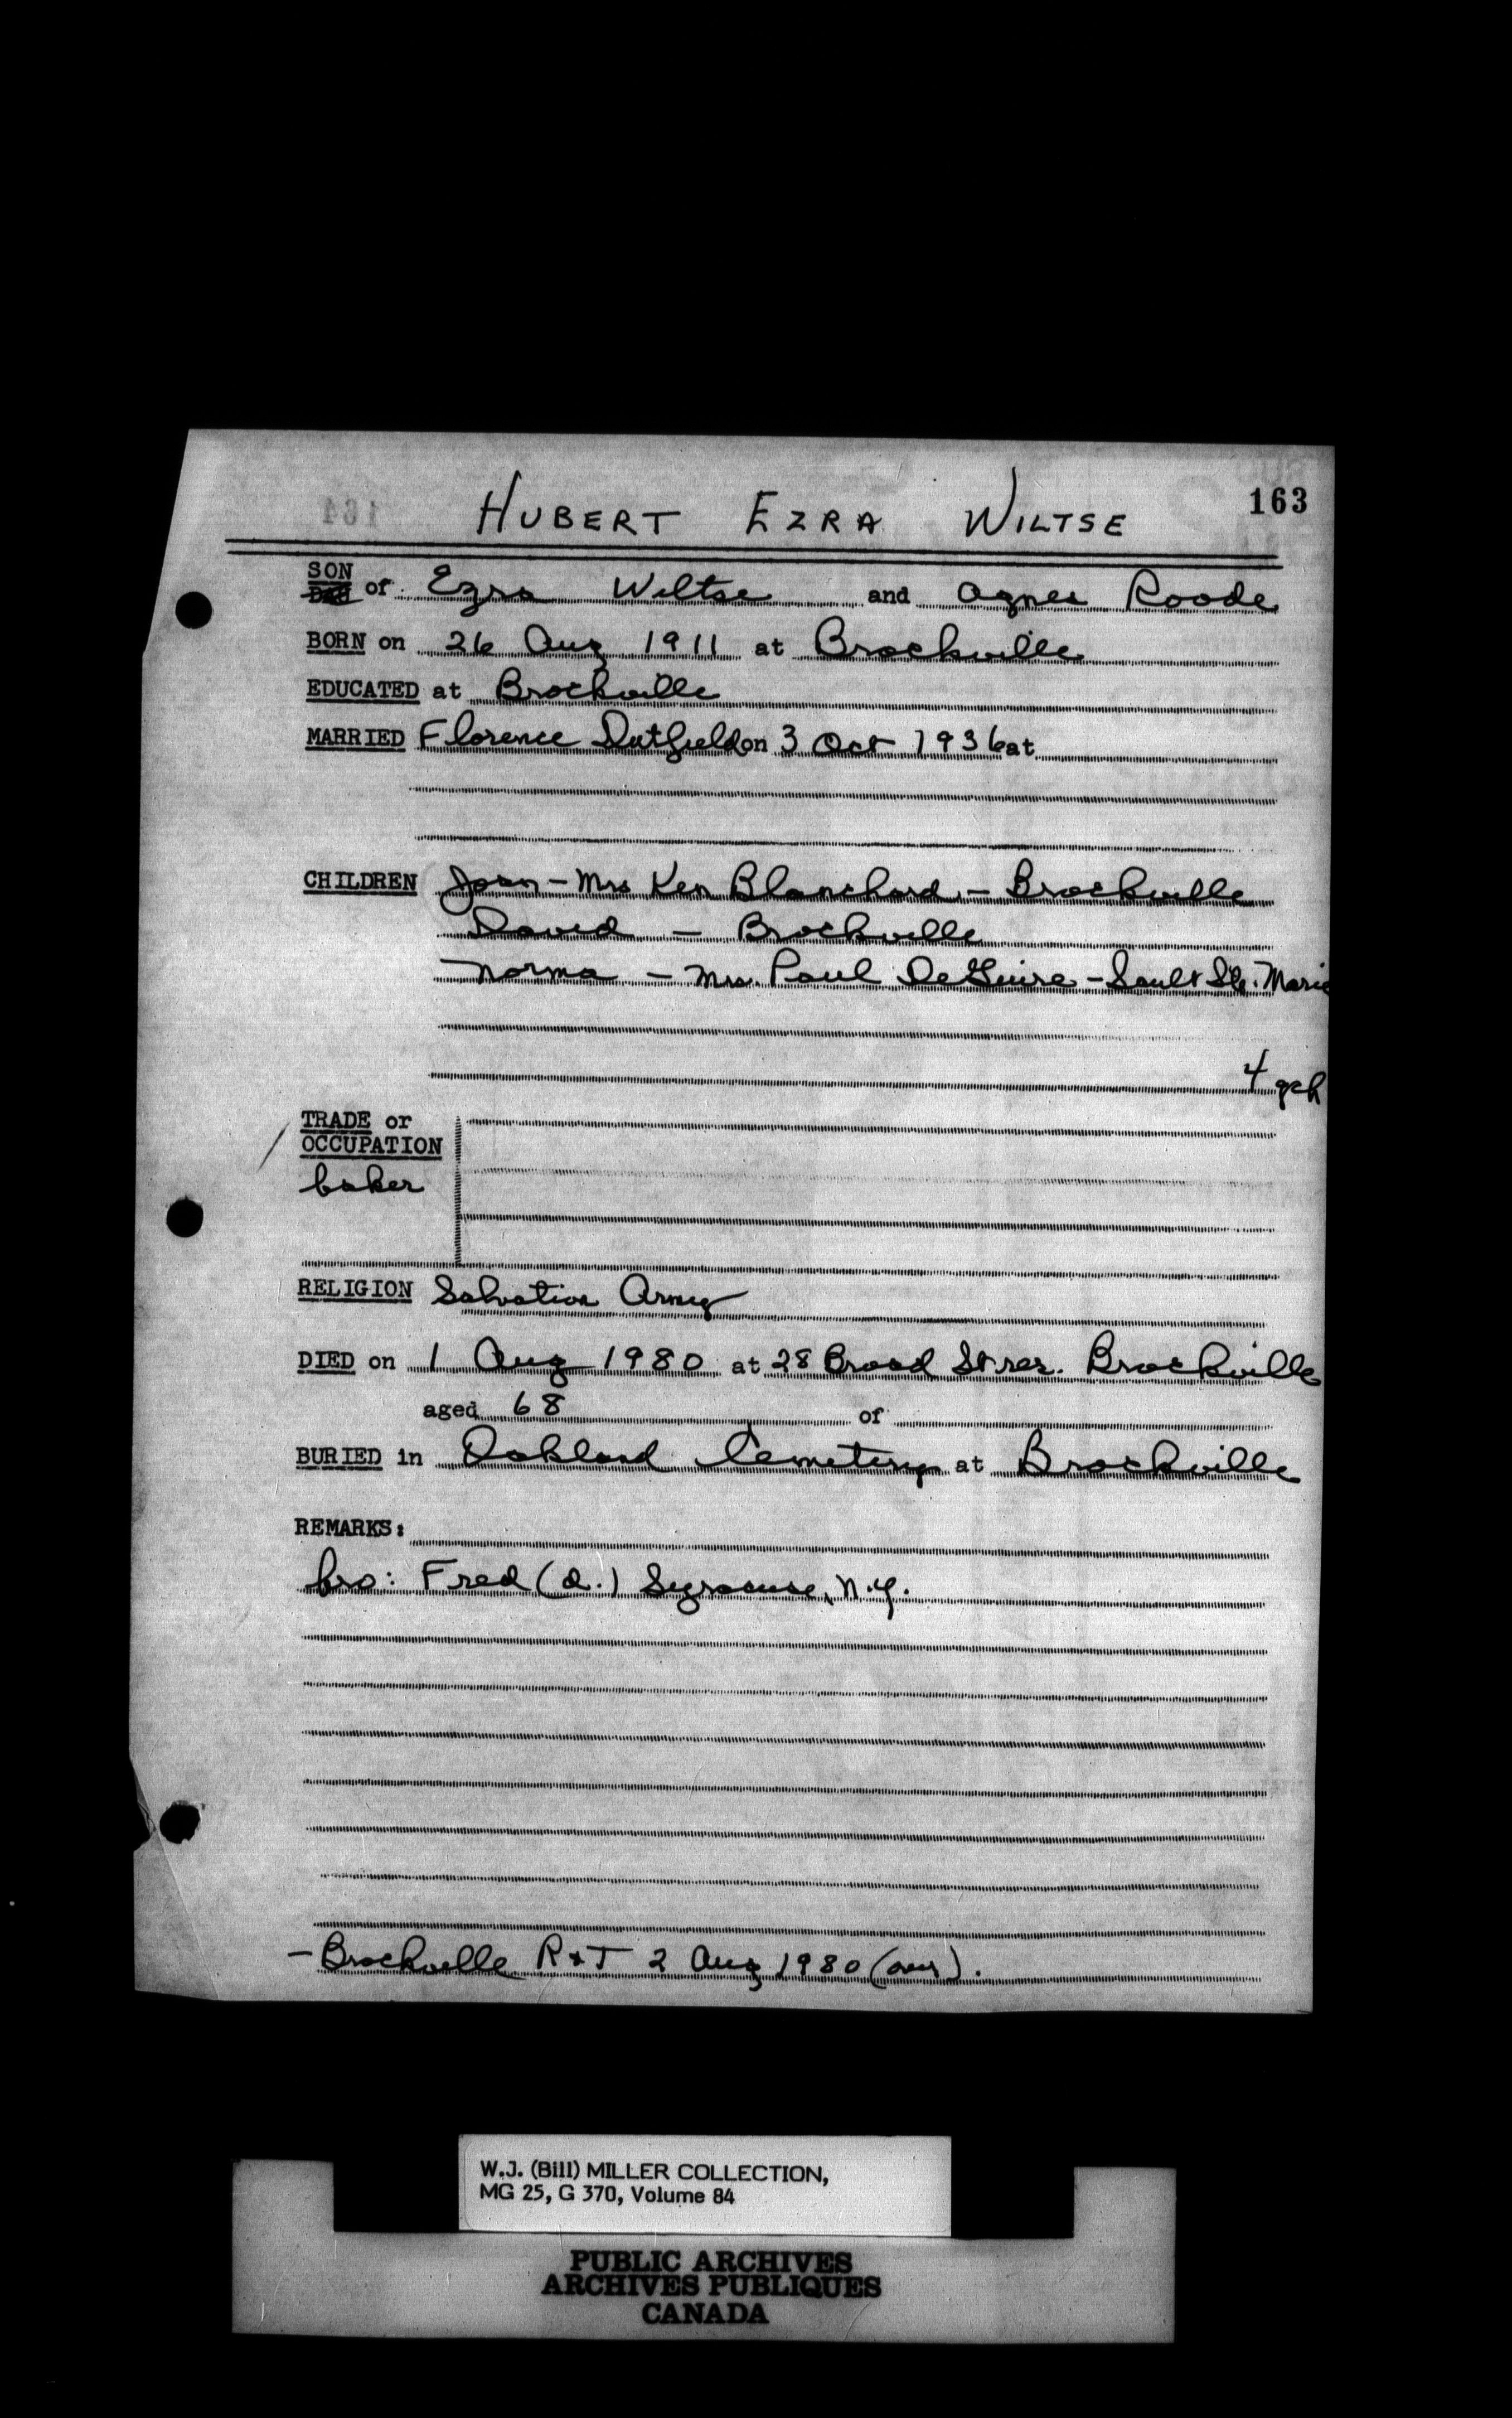 163
HUBERT EZRA WILTSE
SON of Ezra Wiltse and Agnes Roode
BORN on 26 Aug 1911 at Brockville
EDUCATED at Brockville
MARRIED Florence Dutfield on 3 Oct 1936 at
CHILDREN Joan - Mrs Ken Blanchard - Brockville
David - Brockville
Norma - Mrs. Paul DeGuire - Sault Ste. Marie
4 gch
TRADE or
OCCUPATION
baker
RELIGION Salvation Army
DIED on 1 Aug 1980 at 28 Broad St res. Brockville
aged 68 of
BURIED in Oakland Cemetery at Brockville
REMARKS:
bro: Fred (d.) Syracuse, N.Y.
- Brockville R & T 2 Aug 1980 ( ).
W.J. (Bill) MILLER COLLECTION,
MG 25, G 370, Volume 84
PUBLIC ARCHIVES
ARCHIVES PUBLIQUES
CANADA